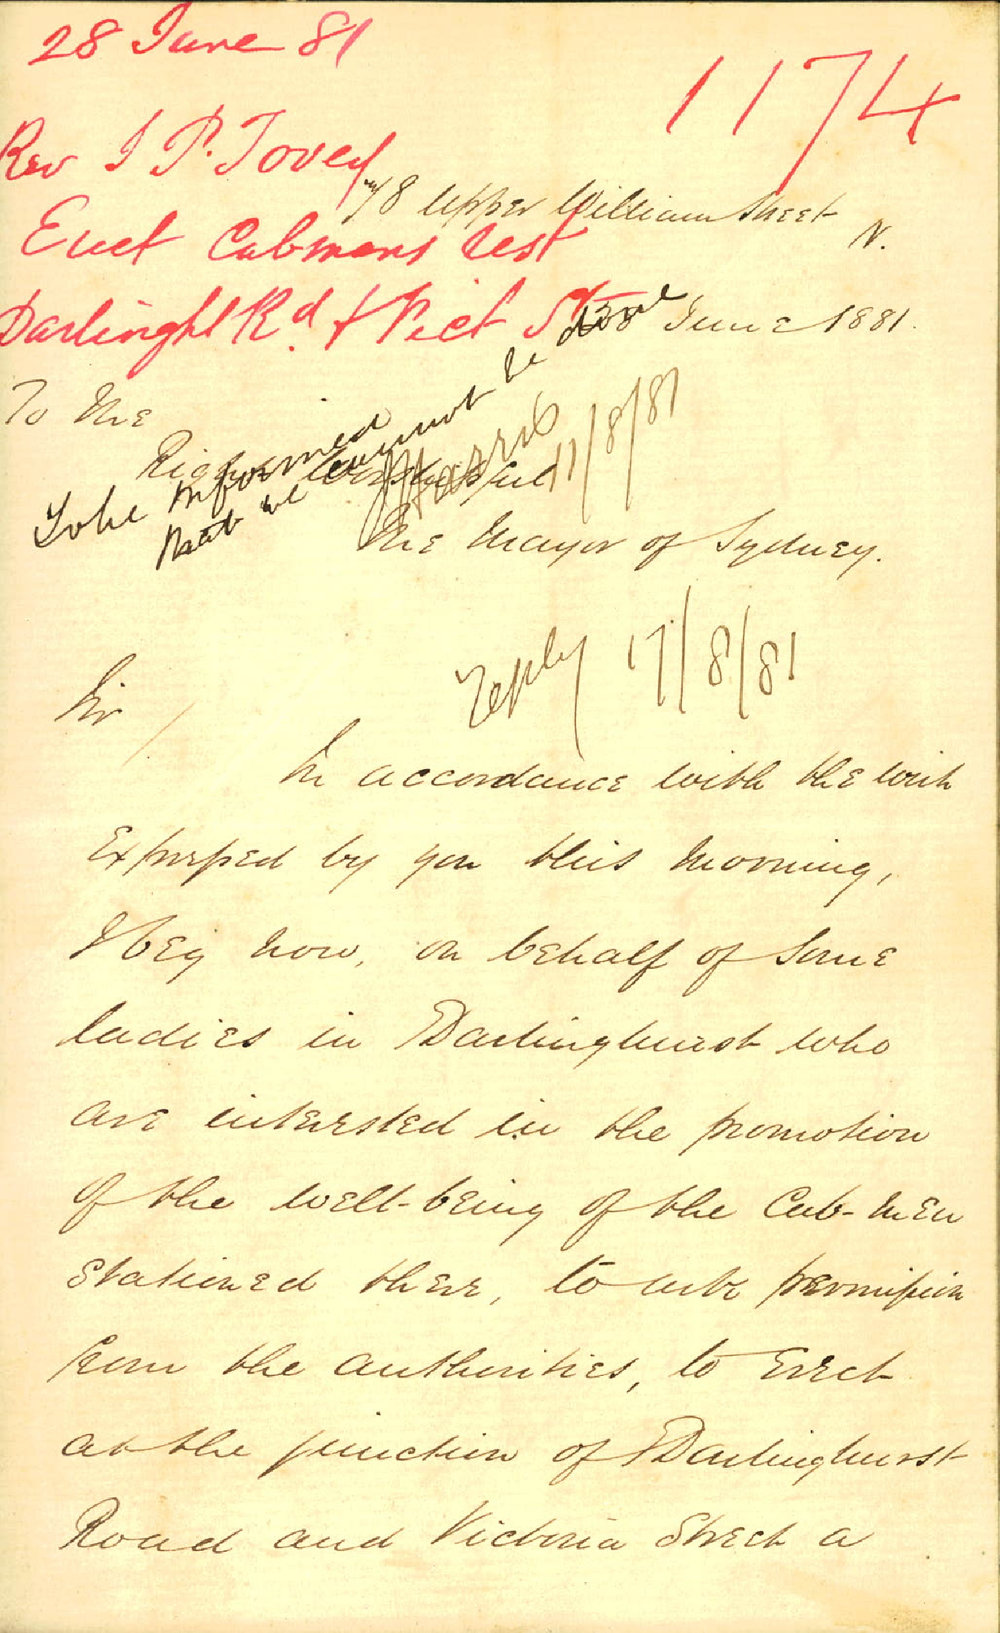 28 June 81
1174
Rev J P. Tovey
78 Upper William Street
N.
Erect Cabmans Rest
Darlinght Rd. & Vict St
28 June 1881.
To The
Right Worshipful
The Mayor of Sydney.
To be informed
that we cannot be done
JHarris
11/8/81
Reply 17/8/81
Sir
In accordance with the wish
Expressed by you this morning,
I beg now, on behalf of some
ladies in Darlinghurst who
are interested in the promotion
of the well-being of the Cab-men
stationed there, to ask permission
from the authorities, to Erect
at the junction of Darlinghurst
Road and Victoria Street a